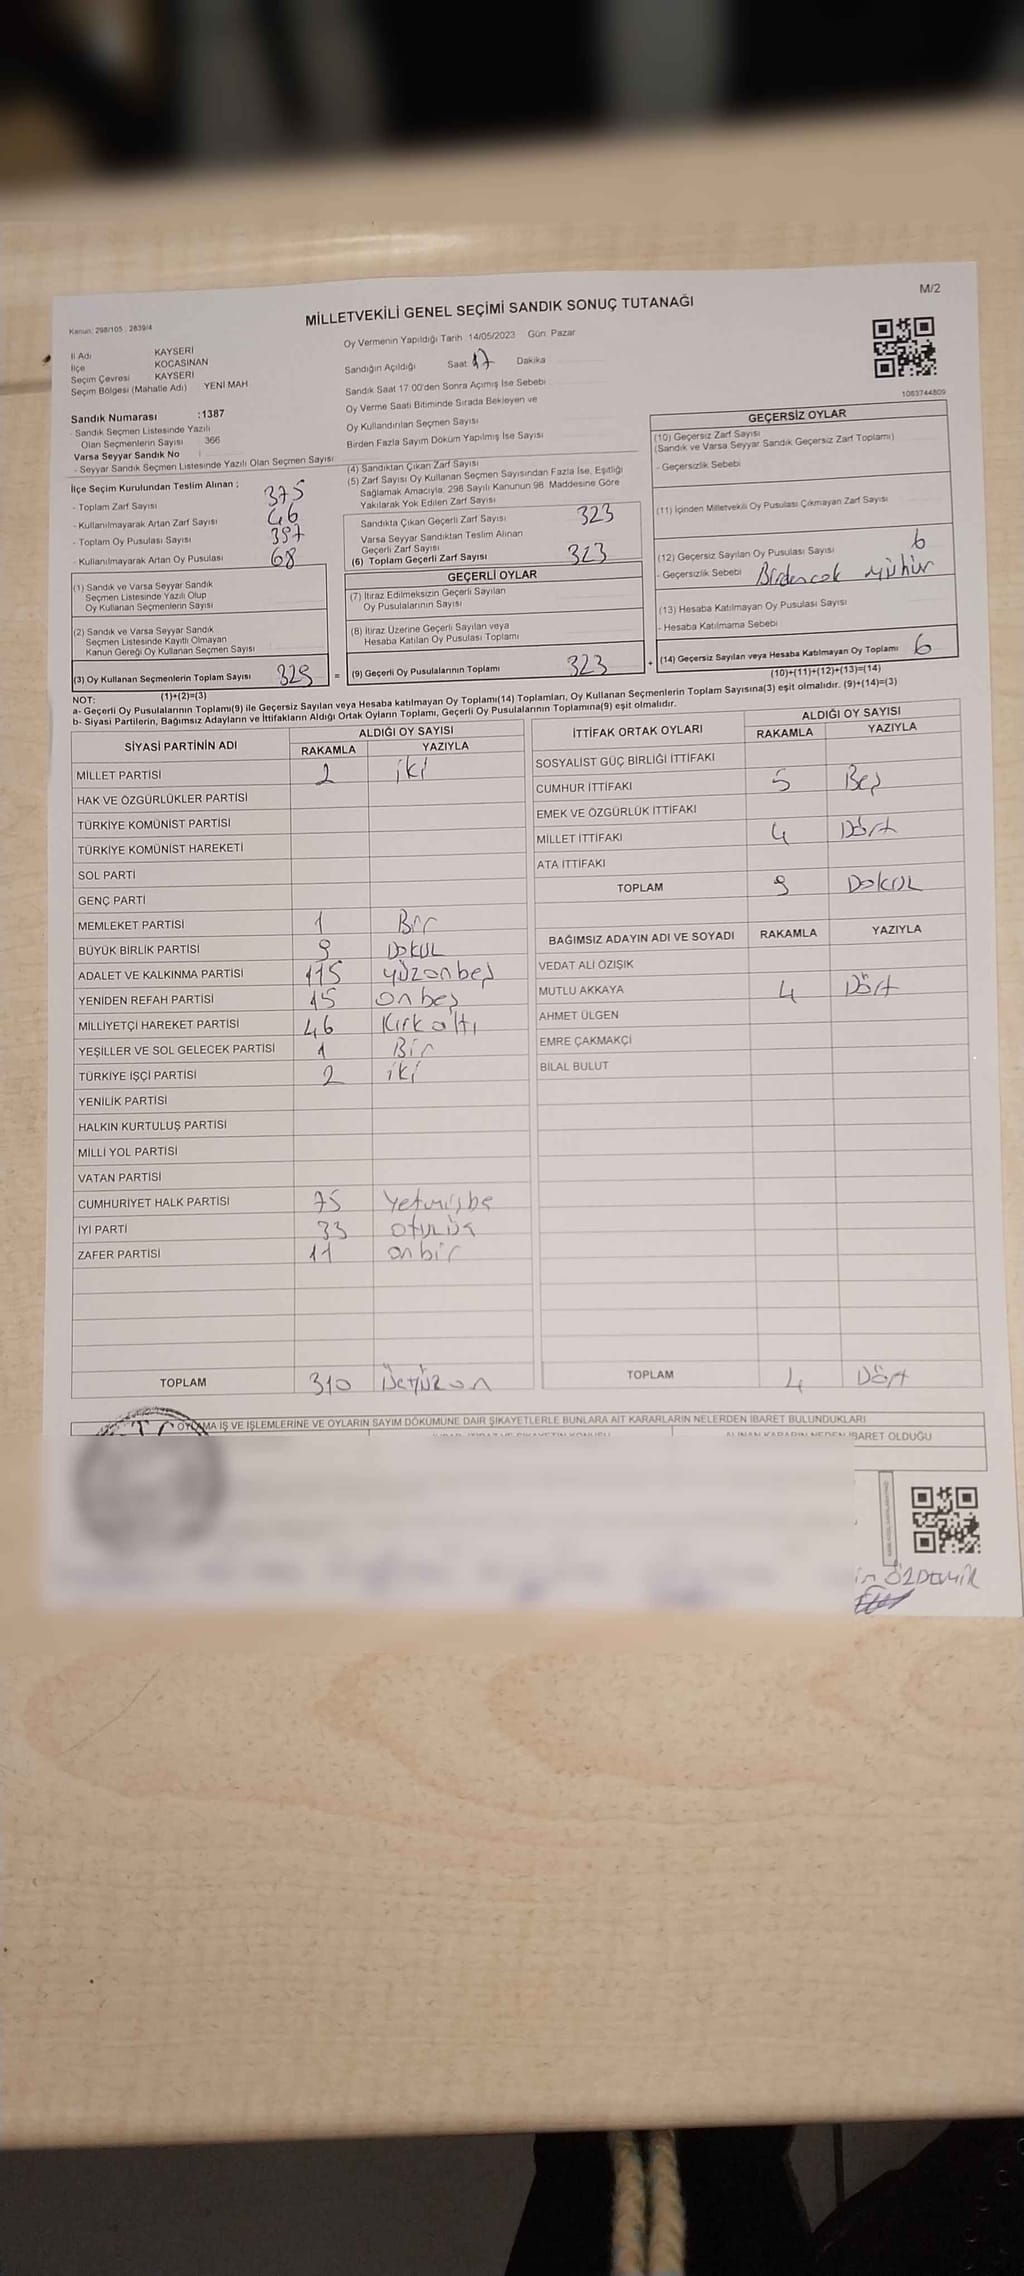 M/2
Kanun: 298/105 : 2839/4
MİLLETVEKİLİ GENEL SEÇİMİ SANDIK SONUÇ TUTANAĞI
İl Adı KAYSERİ
İlçe KOCASİNAN
Seçim Çevresi KAYSERİ
Seçim Bölgesi (Mahalle Adı) YENİ MAH
Sandık Numarası :1387
- Sandık Seçmen Listesinde Yazılı
Olan Seçmenlerin Sayısı 366
Varsa Seyyar Sandık No
- Seyyar Sandık Seçmen Listesinde Yazılı Olan Seçmen Sayısı
Oy Vermenin Yapıldığı Tarih 14/05/2023 Gün: Pazar
Sandığın Açıldığı Saat 17 Dakika
Sandık Saat 17:00'den Sonra Açılmış İse Sebebi
Oy Verme Saati Bitiminde Sırada Bekleyen ve
Oy Kullandırılan Seçmen Sayısı
Birden Fazla Sayım Döküm Yapılmış İse Sayısı
1063744809
İlçe Seçim Kurulundan Teslim Alınan :
- Toplam Zarf Sayısı 375
- Kullanılmayarak Artan Zarf Sayısı 46
- Toplam Oy Pusulası Sayısı 397
- Kullanılmayarak Artan Oy Pusulası 68
(1) Sandık ve Varsa Seyyar Sandık
Seçmen Listesinde Yazılı Olup
Oy Kullanan Seçmenlerin Sayısı
(2) Sandık ve Varsa Seyyar Sandık
Seçmen Listesinde Kayıtlı Olmayan
Kanun Gereği Oy Kullanan Seçmen Sayısı
(3) Oy Kullanan Seçmenlerin Toplam Sayısı 329
(1)+(2)=(3)
(4) Sandıktan Çıkan Zarf Sayısı
(5) Zarf Sayısı Oy Kullanan Seçmen Sayısından Fazla İse, Eşitliği
Sağlamak Amacıyla, 298 Sayılı Kanunun 98. Maddesine Göre
Yakılarak Yok Edilen Zarf Sayısı
Sandıkta Çıkan Geçerli Zarf Sayısı 323
Varsa Seyyar Sandıktan Teslim Alınan
Geçerli Zarf Sayısı
(6) Toplam Geçerli Zarf Sayısı 323
GEÇERLİ OYLAR
(7) İtiraz Edilmeksizin Geçerli Sayılan
Oy Pusulalarının Sayısı
(8) İtiraz Üzerine Geçerli Sayılan veya
Hesaba Katılan Oy Pusulası Toplamı
= (9) Geçerli Oy Pusulalarının Toplamı 323 +
GEÇERSİZ OYLAR
(10) Geçersiz Zarf Sayısı
(Sandık ve Varsa Seyyar Sandık Geçersiz Zarf Toplamı)
- Geçersizlik Sebebi
(11) İçinden Milletvekili Oy Pusulası Çıkmayan Zarf Sayısı
(12) Geçersiz Sayılan Oy Pusulası Sayısı 6
- Geçersizlik Sebebi Birdencok mühür
(13) Hesaba Katılmayan Oy Pusulası Sayısı
- Hesaba Katılmama Sebebi
(14) Geçersiz Sayılan veya Hesaba Katılmayan Oy Toplamı 6
(10)+(11)+(12)+(13)=(14)
NOT:
a- Geçerli Oy Pusulalarının Toplamı(9) ile Geçersiz Sayılan veya Hesaba katılmayan Oy Toplamı(14) Toplamları, Oy Kullanan Seçmenlerin Toplam Sayısına(3) eşit olmalıdır. (9)+(14)=(3)
b- Siyasi Partilerin, Bağımsız Adayların ve İttifakların Aldığı Ortak Oyların Toplamı, Geçerli Oy Pusulalarının Toplamına(9) eşit olmalıdır.
SİYASİ PARTİNİN ADI ALDIĞI OY SAYISI
RAKAMLA YAZIYLA
MİLLET PARTİSİ 2 iki
HAK VE ÖZGÜRLÜKLER PARTİSİ
TÜRKİYE KOMÜNİST PARTİSİ
TÜRKİYE KOMÜNİST HAREKETİ
SOL PARTİ
GENÇ PARTİ
MEMLEKET PARTİSİ 1 Bir
BÜYÜK BİRLİK PARTİSİ 9 Dokuz
ADALET VE KALKINMA PARTİSİ 115 yüzonbeş
YENİDEN REFAH PARTİSİ 15 onbeş
MİLLİYETÇİ HAREKET PARTİSİ 46 Kırkaltı
YEŞİLLER VE SOL GELECEK PARTİSİ 1 Bir
TÜRKİYE İŞÇİ PARTİSİ 2 iki
YENİLİK PARTİSİ
HALKIN KURTULUŞ PARTİSİ
MİLLİ YOL PARTİSİ
VATAN PARTİSİ
CUMHURİYET HALK PARTİSİ 75 Yetmişbe
İYİ PARTİ 33 otuzüç
ZAFER PARTİSİ 11 onbir
TOPLAM 310 Üçyüzon
İTTİFAK ORTAK OYLARI ALDIĞI OY SAYISI
RAKAMLA YAZIYLA
SOSYALİST GÜÇ BİRLİĞİ İTTİFAKI
CUMHUR İTTİFAKI 5 Beş
EMEK VE ÖZGÜRLÜK İTTİFAKI
MİLLET İTTİFAKI 4 Dört
ATA İTTİFAKI
TOPLAM 9 Dokuz
BAĞIMSIZ ADAYIN ADI VE SOYADI RAKAMLA YAZIYLA
VEDAT ALİ ÖZIŞIK
MUTLU AKKAYA 4 Dört
AHMET ÜLGEN
EMRE ÇAKMAKÇİ
BİLAL BULUT
TOPLAM 4 Dört
OYLAMA İŞ VE İŞLEMLERİNE VE OYLARIN SAYIM DÖKÜMÜNE DAİR ŞİKAYETLERLE BUNLARA AİT KARARLARIN NELERDEN İBARET BULUNDUKLARI
ALINAN KARARIN NEDEN İBARET OLDUĞU
T.C.
in ÖZDEMİR